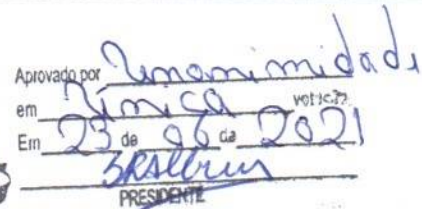 Aprovado por Unanimidade
em Única votação
Em 23 de 06 de 2021
PRESIDENTE